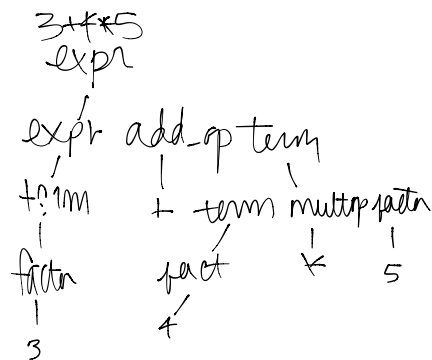 3+4*5
expr
expr add_op term
term + term multop factor
factor fact * 5
4
3